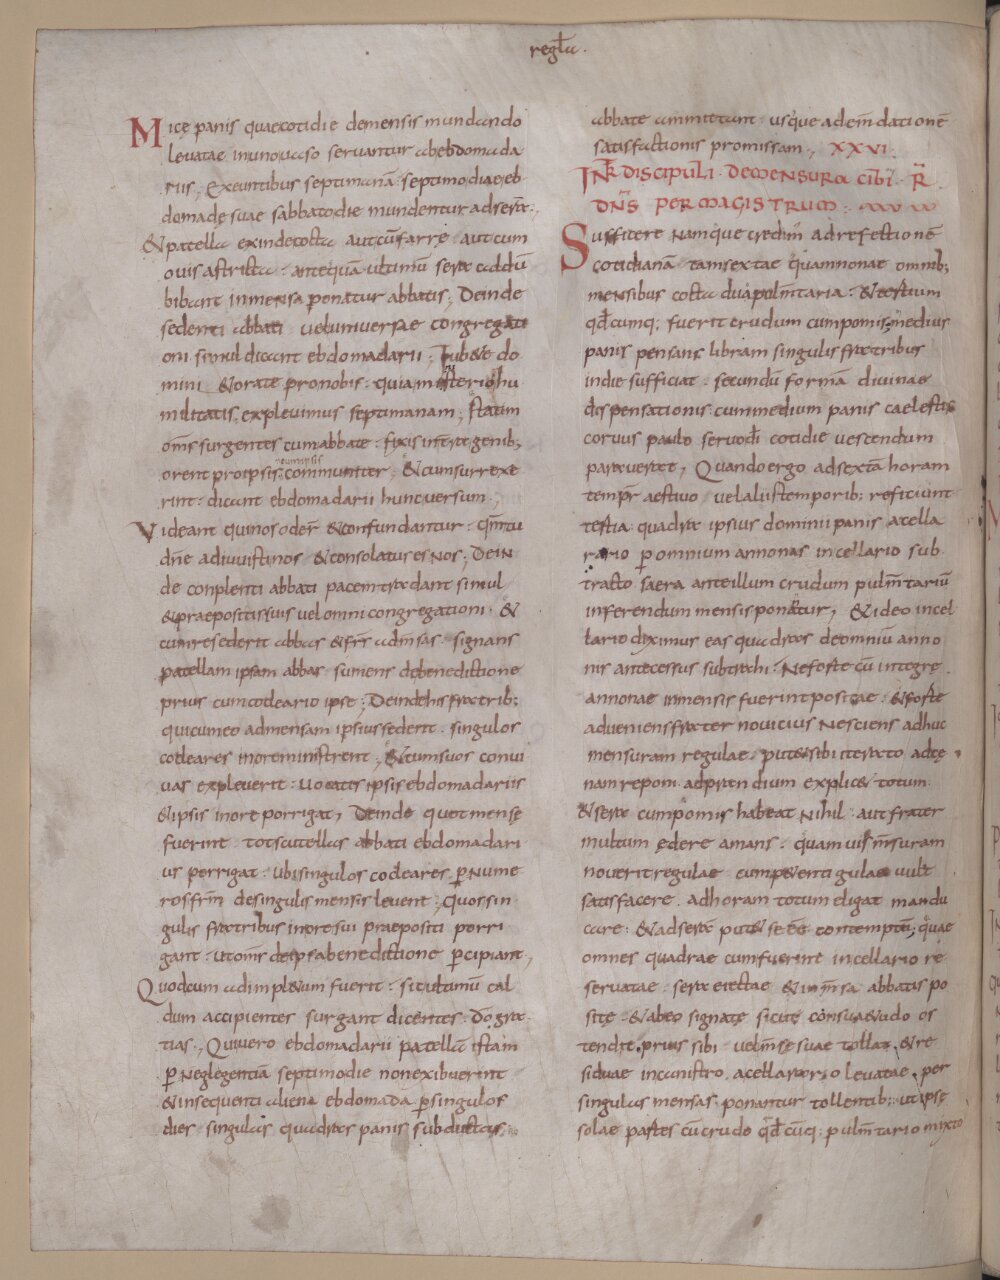 regl̄a.
Micę panis quae cotidie demensis mundando
leuatae inuno uaso seruantur abebdomada
riis, Exeuntibus septimana septimo diae eb
domade suae sabbato die mundentur ad sera.,
& patella exinde cocta aut cū farre aut cum
ouis astricta. antequā ultimū sera caldū
bibant inmensa ponatur abbatis; Deinde
sedenti abbati uel uniuersae congregati
oni simul dicant ebdomadarii; Iubete do
mini & orate pro nobis. quia ministerio hu
militatis expleuimus septimanam; statim
oms surgentes cum abbate. fixis in terra genib;
orent pro ipsis cum ipsis communiter; & cum surrexe
rint. dicant ebdomadarii hunc uersum.
Videant qui nos oder̄ & confundantur. qm̄ tu
dn̄e adiuuisti nos & consolatus es nos; Dein
de conplenti abbati pacem tradant simul
& praepositis suis uel omni congregationi. &
cum resederit abbas & frs̄ ad m̄sas. signans
patellam ipsam abbas sumens de benedictione
prius cum cocleario ipse; Deinde his fratrib;
qui cum eo ad mensam ipsius sedent. singulos
cocleares in ore ministrent; & cum suos conui
uas expleuerit. uocatis ipsis ebdomadariis
& ipsis in ore porrigat; Deinde quot mense
fuerint tot scutellas abbati ebdomadari
us porrigat. ubi singulos cocleares p̄ nume
ros frm̄ de singulis mensis leuent; quos sin
gulis fratribus in ore sui praepositi porri
gant. ut om̄s de ipsa benedictione p̄cipiant,
Quod cum adimpletum fuerit. sic ultimū cal
dum accipientes surgant dicentes. dō gra
tias., Qui uero ebdomadarii patellā istam
p̄ neglegentiā septimo die non exibuerint
& insequenti aliena ebdomada p̄ singulos
dies singulas quadras panis subductas.
abbate ammittant usque ad em̄dationē
satisfactionis promissam, XXVI.
INR̄ DISCIPULI. DEMENSURA CIBI. R̄
DN̄S PER MAGISTRUM:
Sufficere namque credim̄ ad refectionē
cotidianā tam sextae quam nonae omnib;
mensibus cocta duo pulm̄taria. & tertium
qd̄cumq; fuerit crudum cum pomis; medius
panis pensans libram singulis fratribus
in die sufficiat. secundū formā diuinae
dispensationis. cum medium panis caelestis
coruus paulo seruo dī cotidie uescendum
pararet; Quando ergo ad sextā horam
tempr̄ aestiuo uel aliis temporib; reficiunt
tertia quadra ipsius dominii panis a cella
rario p̄ omnium annonas in cellario sub
tracto saera ante illum crudum pulm̄tariū
inferendum mensis ponatur, & ideo in cel
lario diximus eas quadras de omniū anno
nis antecessus subtrachi. Ne forte cū integrę
annonae in mensis fuerint positae. & forte
adueniens frater nouicius nesciens adhuc
mensuram regulae. putet sibi iterato ad ce
nam reponi ad prandium explicet totum.
& sera cum pomis habeat nihil. aut frater
multum ędere amans. quam uis m̄suram
nouerit regulae cum petenti gulae uult
satisfacere. ad horam totum eligat mandu
care. & ad sera putet se eē contemptū; quae
omnes quadrae cum fuerint in cellario re
seruatae. sera eiectae & in m̄sa abbatis po
sitę & ab eo signatę sicut consuetudo os
tendit. prius sibi uel m̄se suae tollat. & re
siduae in canistro. a cellarario leuatae. per
singulas mensas ponantur tollentib; ut ipsę
solae partes cū crudo qd̄cūq; pulm̄tario mixto